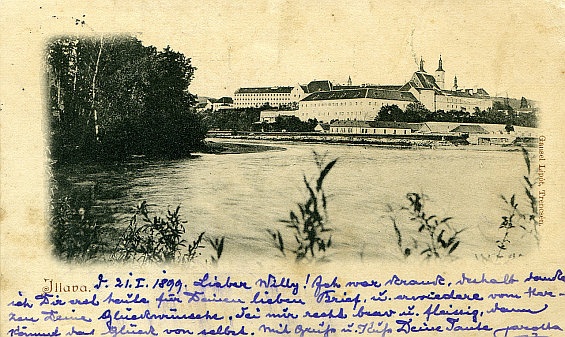 Illava.
d. 21.I. 1899. Lieber Willy! Ich war krank, deshalb danke
ich Dir erst heute für Deinen lieben Brief, u. erwiedere vom Her-
zen Deine Glückwünsche, sei mir recht brav u. fleißig, dann
kömmt das Glück von selbst. Mit Gruß u. Kuß Deine Tante
Samuel Lipót, Trencsén